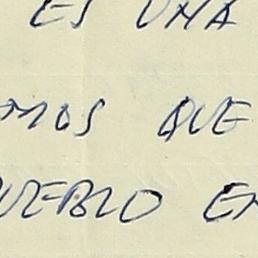 ES UNA
MOS QUE
PUEBLO EN